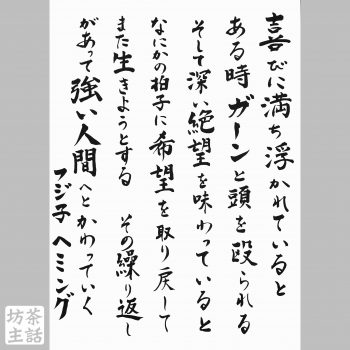 喜びに満ち浮かれていると
ある時ガーンと頭を殴られる
そして深い絶望を味わっていると
なにかの拍子に希望を取り戻して
また生きようとする　その繰り返し
があって強い人間へとかわっていく
フジ子 ヘミング
茶話
坊主